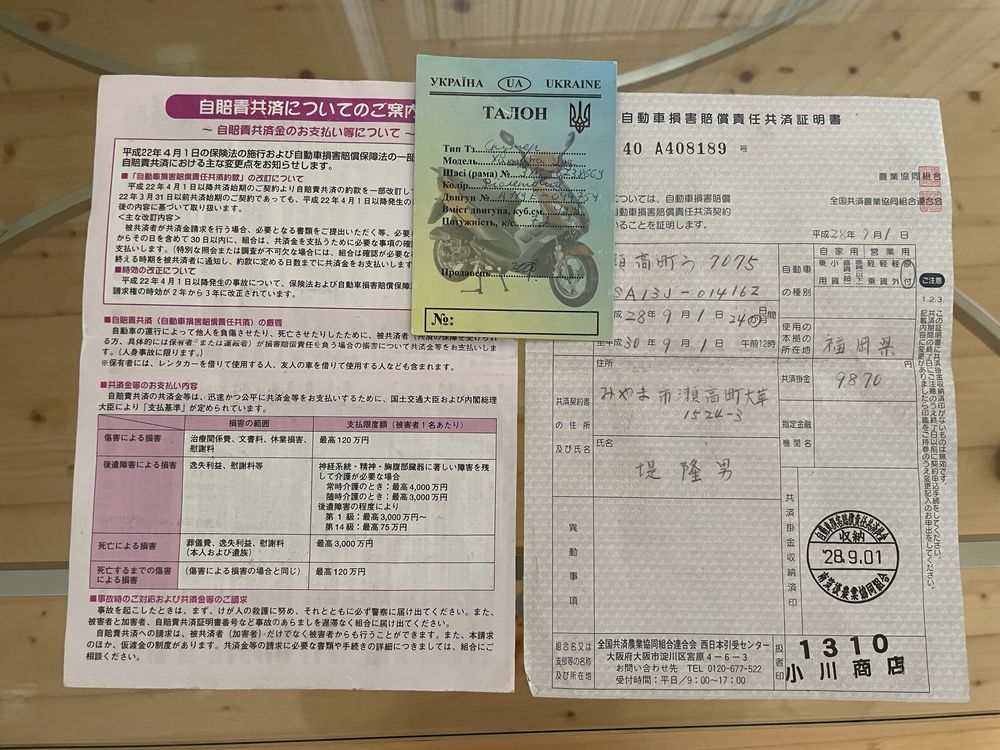 自賠責共済についてのご案内
～ 自賠責共済金のお支払い等について ～
平成22年4月1日の保険法の施行および自動車損害賠償保障法の一部
自賠責共済における主な変更点をお知らせします。
■「自動車損害賠償責任共済約款」の改訂について
平成22年4月1日以降共済始期のご契約より自賠責共済の約款を一部改訂して
22年3月31日以前共済始期のご契約であっても、平成22年4月1日以降発生の
後の内容に基づいて取り扱います。
＜主な改訂内容＞
被共済者が共済金請求を行う場合、必要となる書類をご提出いただく等、必要
からその日を含めて30日以内に、組合は、共済金を支払うために必要な事項の確
支払いします。（特別な照会または調査が不可欠な場合には、組合は確認が必要な
終える時期を被共済者に通知し、約款に定める日数までに共済金をお支払いします
■時効の改正について
平成22年4月1日以降発生の事故について、保険法および自動車損害賠償保障
請求権の時効が2年から3年に改正されています。
■自賠責共済（自動車損害賠償責任共済）の趣旨
自動車の運行によって他人を負傷させたり、死亡させたりしたために、被共済者（共済の保障を受けられ
る方、具体的には保有者または運転者）が損害賠償責任を負う場合の損害について共済金等をお支払いしま
す。（人身事故に限ります。）
※保有者には、レンタカーを借りて使用する人、友人の車を借りて使用する人なども含まれます。
■共済金等のお支払い内容
自賠責共済の共済金等は、迅速かつ公平に共済金等をお支払いするために、国土交通大臣および内閣総理
大臣により「支払基準」が定められています。
損害の範囲 支払限度額（被害者1名あたり）
傷害による損害 治療関係費、文書料、休業損害、慰謝料 最高120万円
後遺障害による損害 逸失利益、慰謝料等 神経系統・精神・胸腹部臓器に著しい障害を残
して介護が必要な場合
常時介護のとき：最高4,000万円
随時介護のとき：最高3,000万円
後遺障害の程度により
第 1 級：最高3,000万円～
第14級：最高75万円
死亡による損害 葬儀費、逸失利益、慰謝料（本人および遺族） 最高3,000万円
死亡するまでの傷害による損害 （傷害による損害の場合と同じ） 最高120万円
■事故時のご対応および共済金等のご請求
事故を起こしたときは、まず、けが人の救護に努め、それとともに必ず警察に届け出てください。また、
被害者と加害者、自賠責共済証明書番号など事故のあらましを遅滞なく組合に届け出てください。
自賠責共済への請求は、被共済者（加害者）だけでなく被害者からも行うことができます。また、本請求
のほか、仮渡金の制度があります。共済金等の請求に必要な書類や手続きの詳細につきましては、組合にご
相談ください。
УКРАЇНА UA UKRAINE
ТАЛОН
Тип Тз
Модель
Шасі (рама) №
Колір
Двигун №
Вміст двигуна, куб.см.
Потужність, к/с
Продавець
№:
自動車損害賠償責任共済証明書
40 A408189 号
農業協同組合
については、自動車損害賠償 全国共済農業協同組合連合会
自動車損害賠償責任共済契約
いることを証明します。
平成28年9月1日
瀬高町う 7075
SA13J-014162
28年9月1日 24か月間
至平成30年9月1日 午前12時
自動車の種別
自家用 営業用
ご注意
使用の本拠の所在地 福岡県
共済契約者の住所及び氏名
住所
みやま市瀬高町大草
1524-3
氏名
堤 隆男
共済掛金 9870 円
指定金融機関名
異動事項
共済掛金収納済印
自動車損害賠償責任共済掛金
収納
'28.9.01
南筑後農業協同組合
組合名又は支部等の名称及び所在地
全国共済農業協同組合連合会 西日本引受センター
大阪府大阪市淀川区宮原4－6－3
お問い合わせ先 TEL 0120-677-522
受付時間：平日／9：00～17：00
扱者印
1310
小川商店